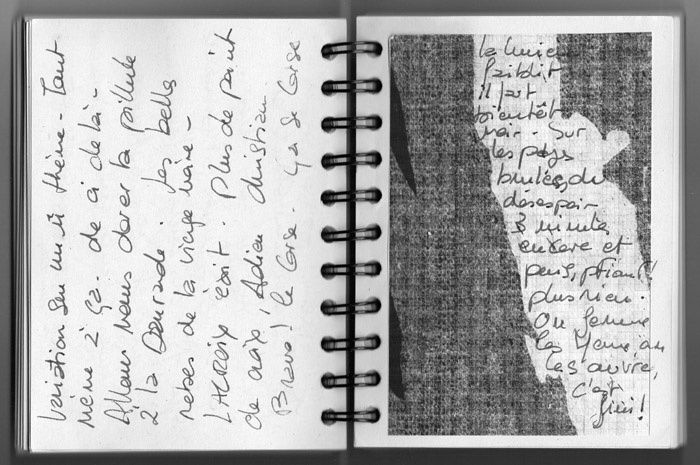 Variation sur un si thème. Tant
même à ça. de ci de là.
Allons nous dorer la pillule
à la Daurade. Les belles
robes de la vierge noire.
LACROIX écrit. Plus de point
de croix, Adieu christian
Bravo! le Corse. ça se Corse
la lumière
faiblit
il fait
bientôt
noir. Sur
les pays
brulés du
désespoir
3 minutes
encore et
puis, pfiout!
plus rien.
On ferme
les yeux on
les ouvre,
c'est
fini!